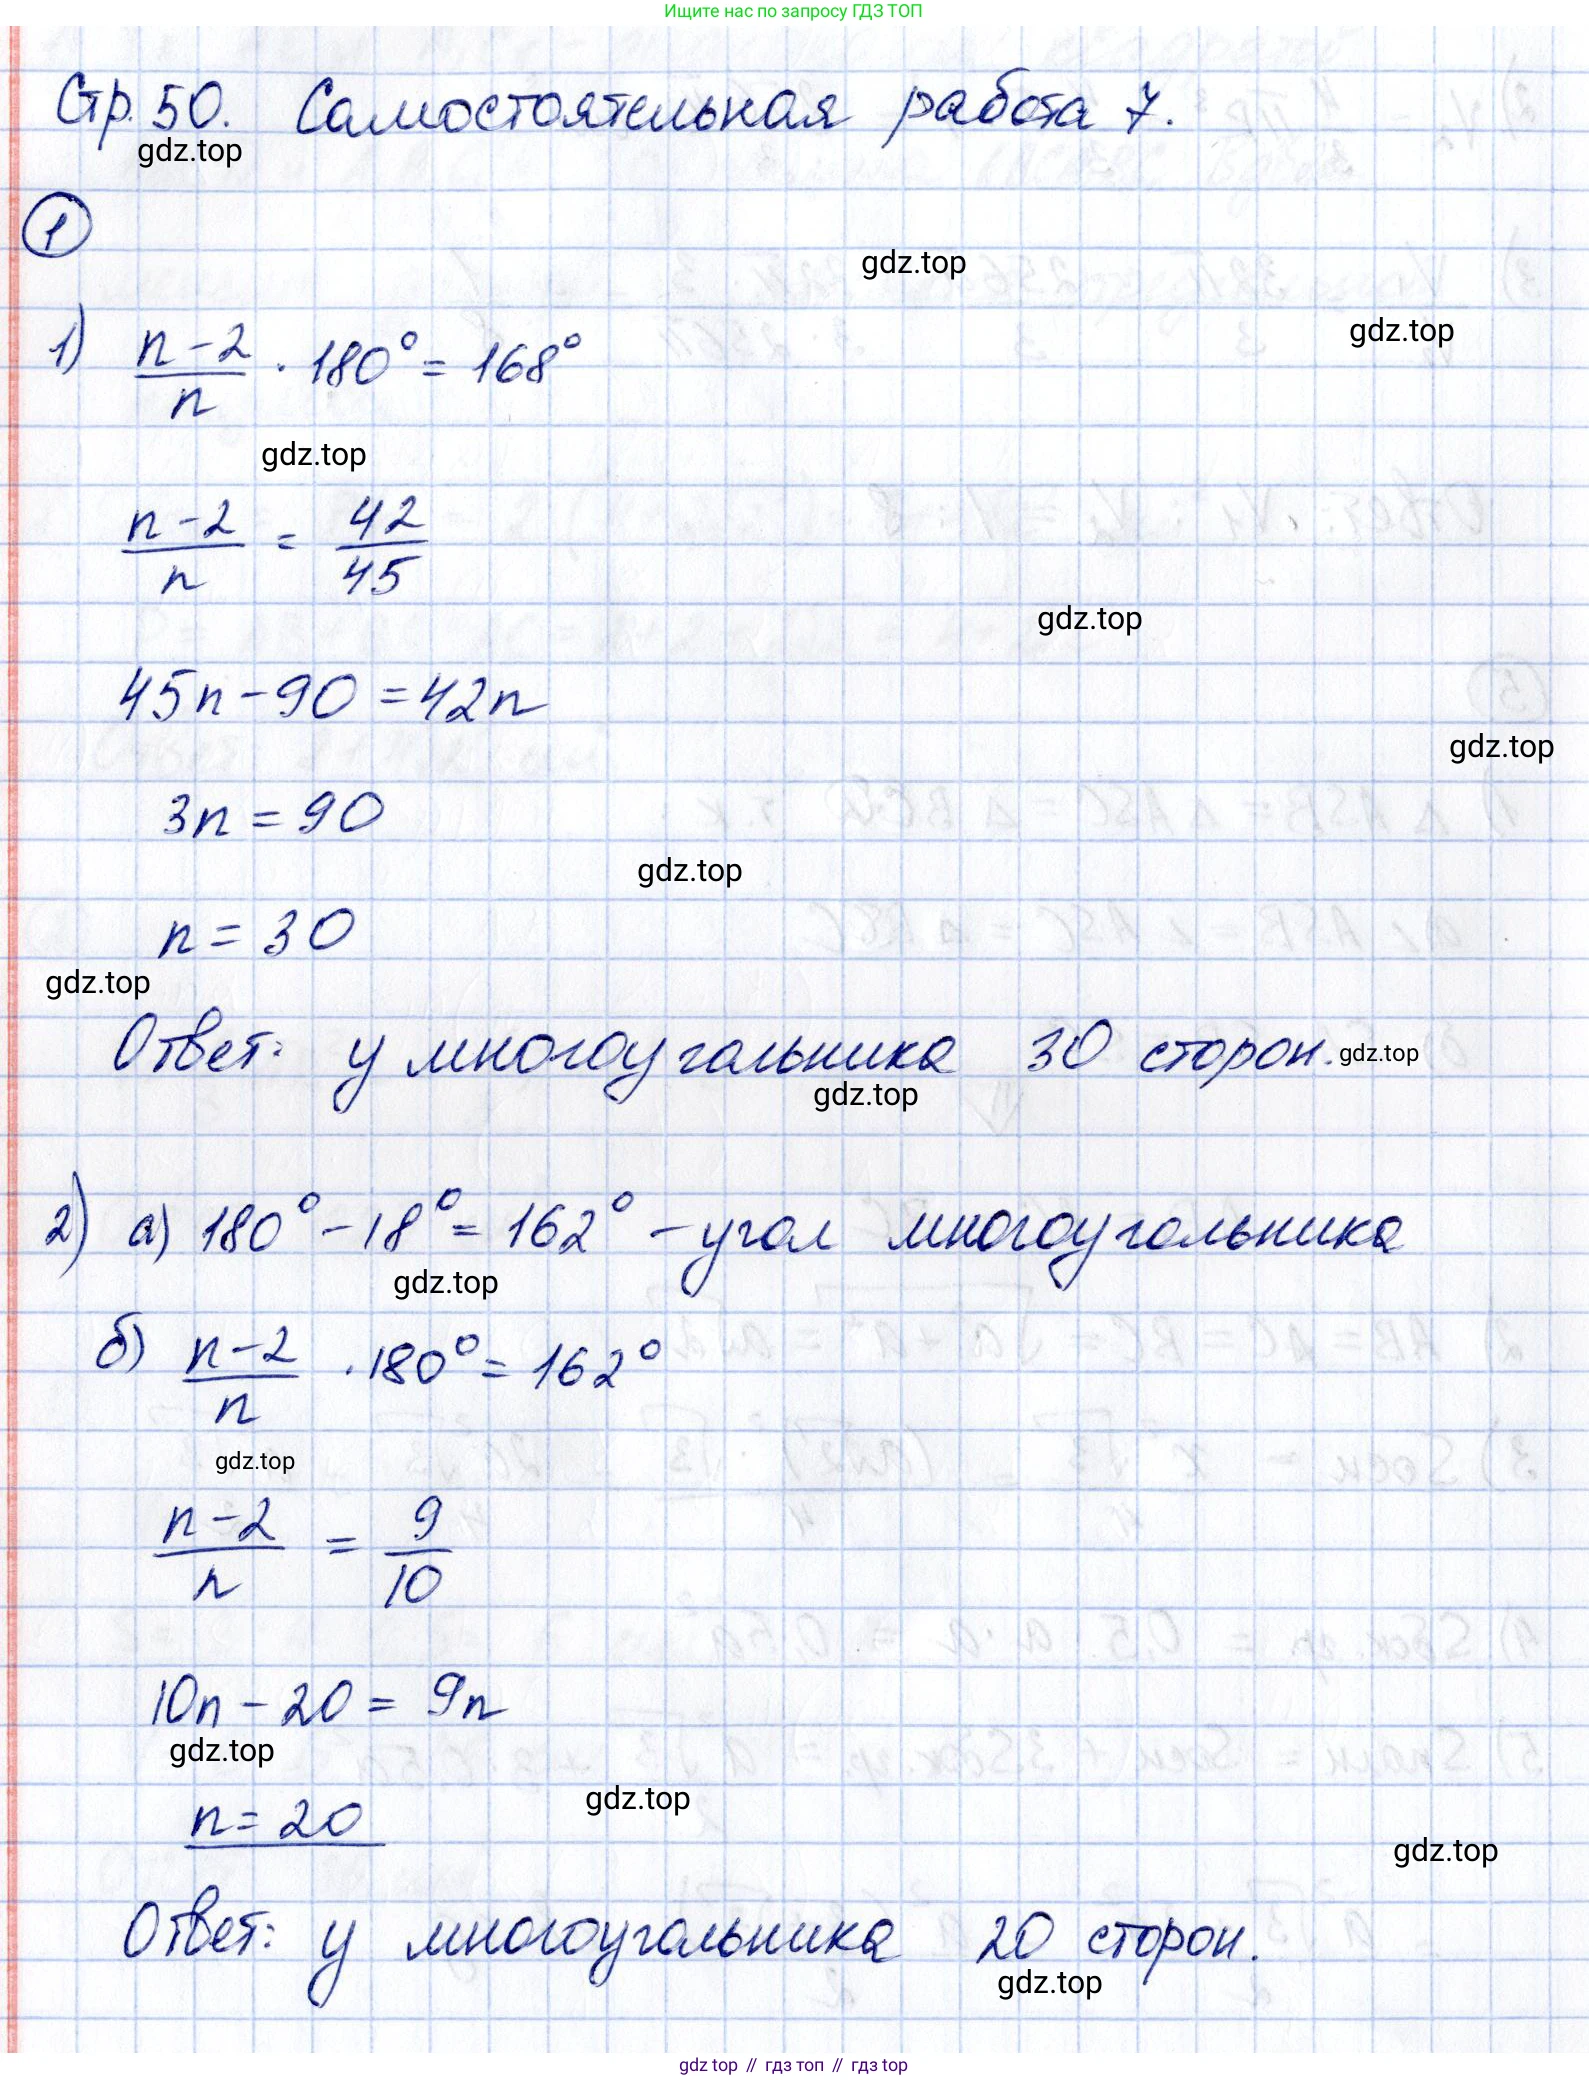 Ищите нас по запросу ГДЗ ТОП
Стр. 50. Самостоятельная работа 7.
gdz.top
1
gdz.top
gdz.top
1) n-2/n · 180° = 168°
gdz.top
n-2/n = 42/45
gdz.top
45n - 90 = 42n
gdz.top
3n = 90
gdz.top
n = 30
gdz.top
Ответ: у многоугольника 30 сторон.
gdz.top
gdz.top
2) а) 180° - 18° = 162° - угол многоугольника
gdz.top
б) n-2/n · 180° = 162°
gdz.top
n-2/n = 9/10
10n - 20 = 9n
gdz.top
gdz.top
n = 20
gdz.top
Ответ: у многоугольника 20 сторон.
gdz.top
gdz top // гдз топ // гдз top